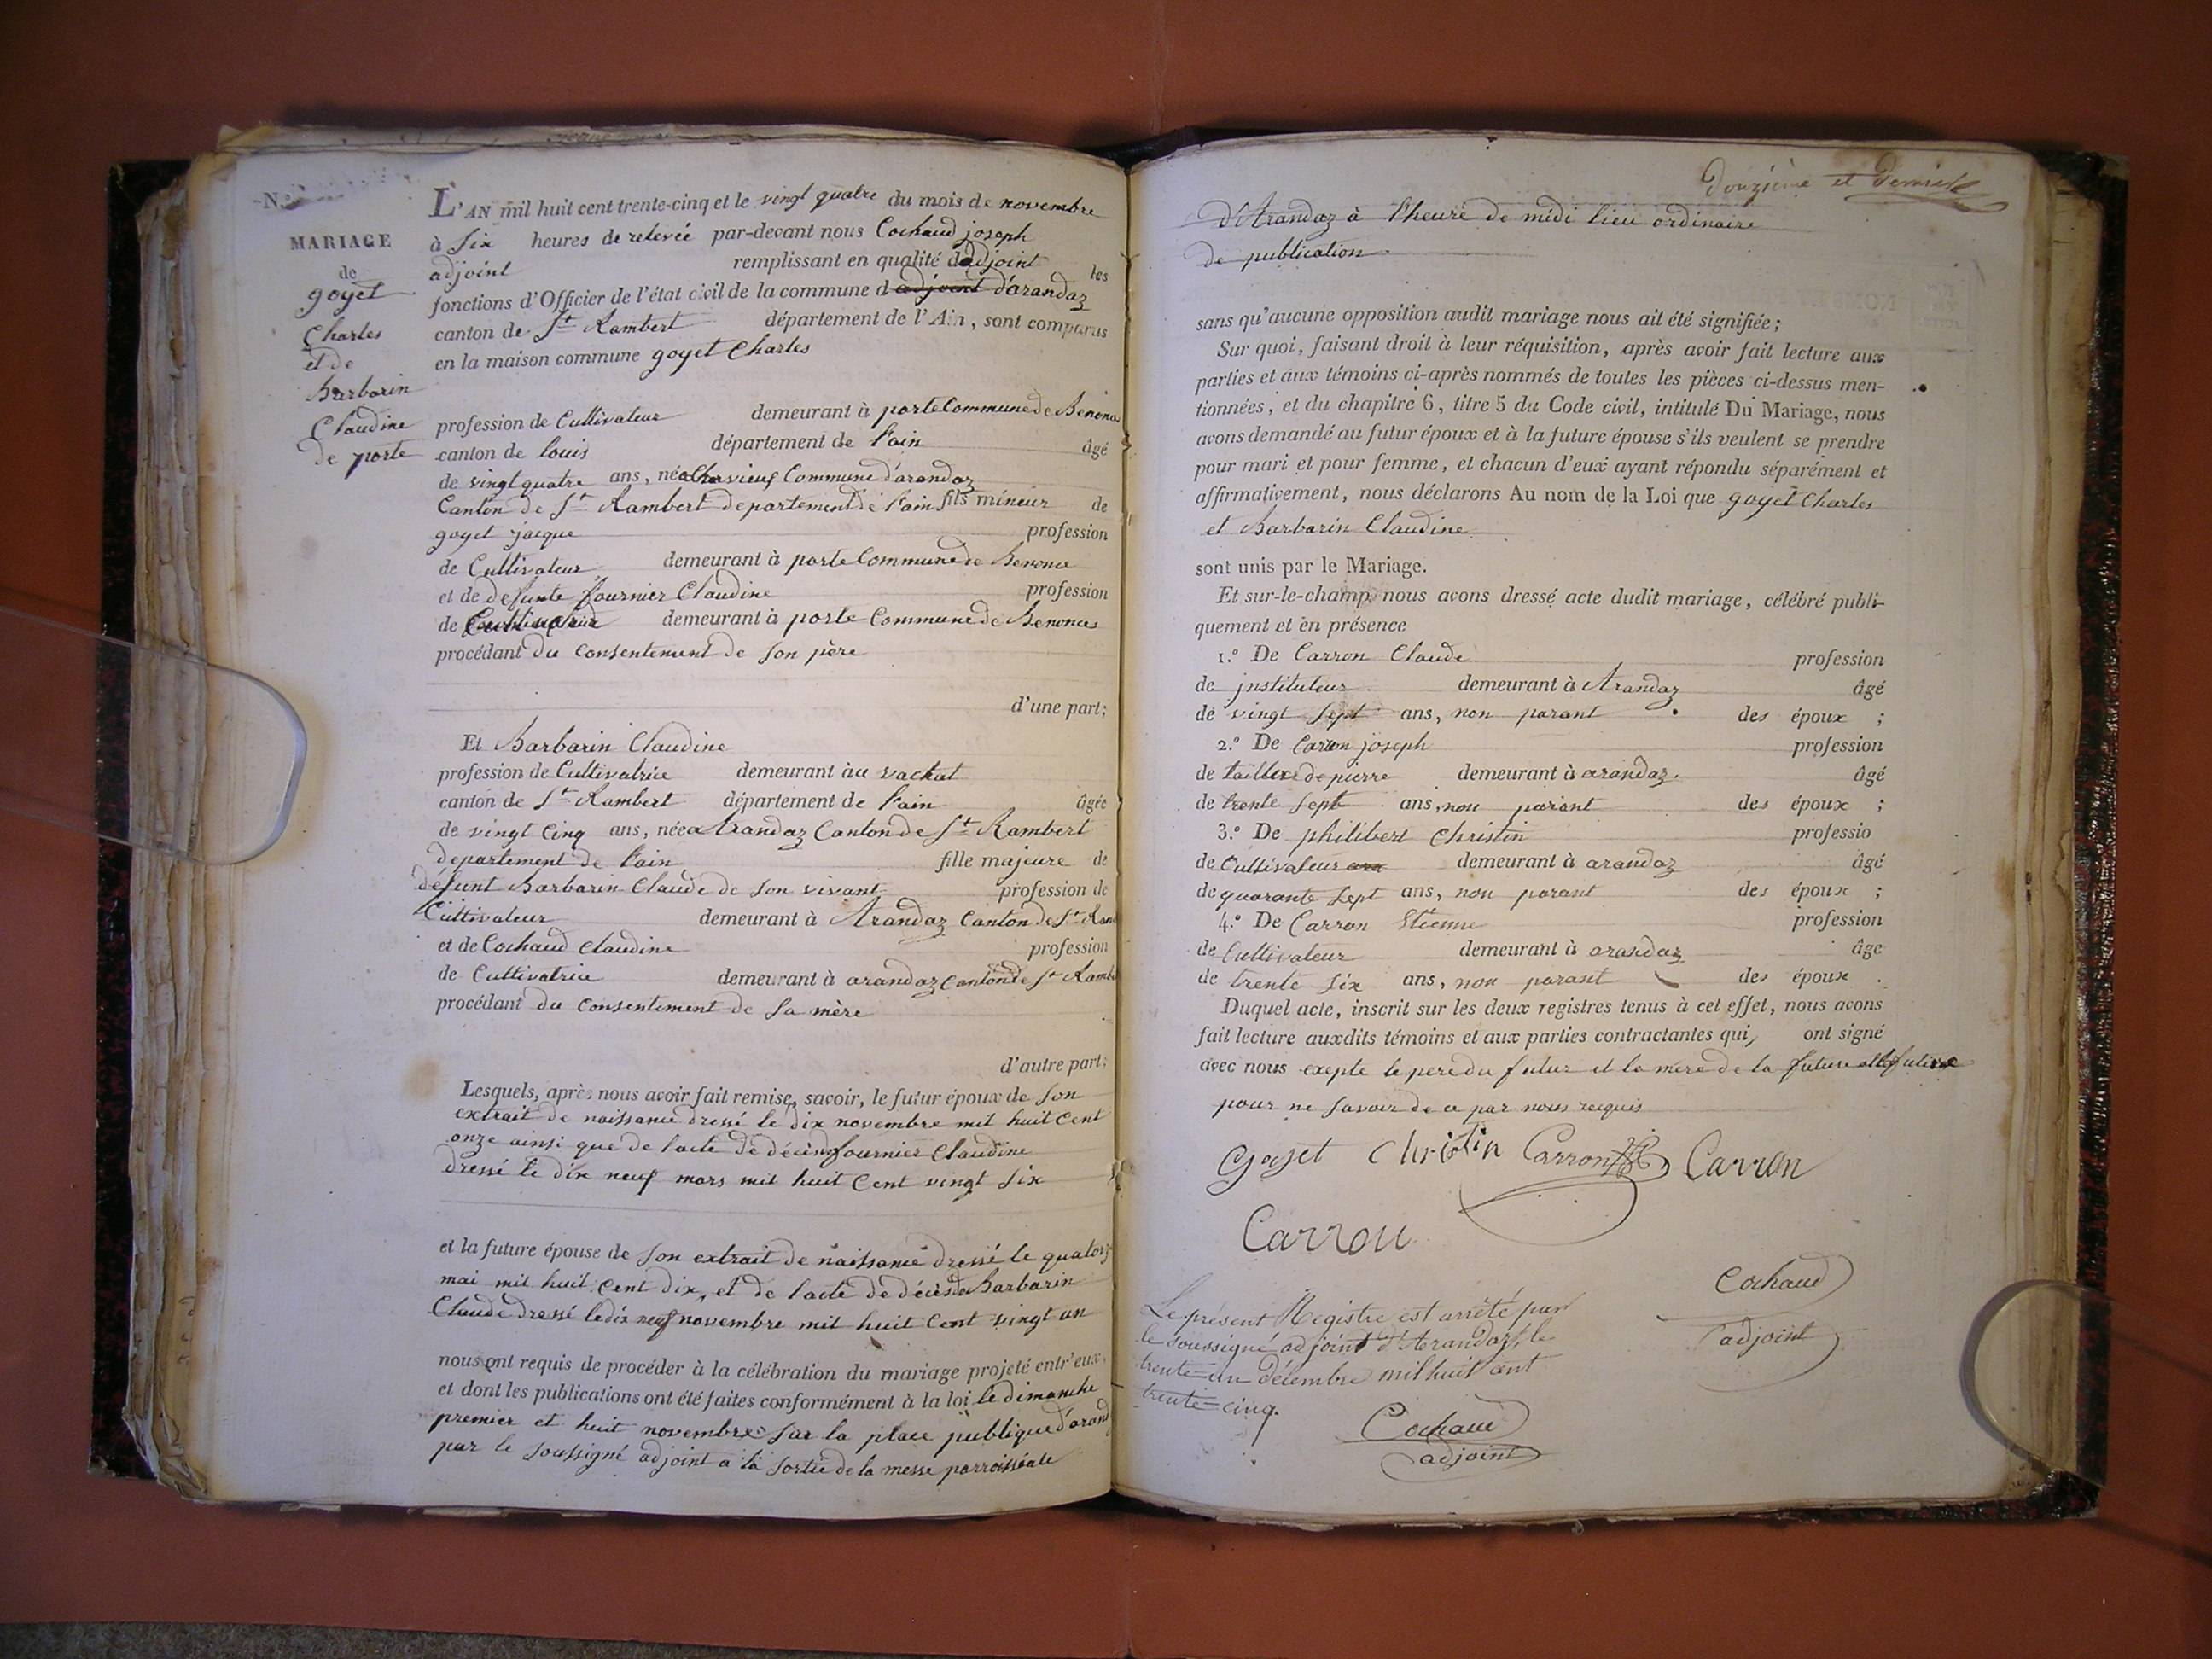 N.º
MARIAGE
de
goyet
Charles
et de
Barbarin
Claudine
de porte
L'AN mil huit cent trente-cinq et le vingt quatre du mois de novembre
à Six heures de relevée par-devant nous Cochaud joseph
adjoint remplissant en qualité d'adjoint les
fonctions d'Officier de l'état civil de la commune d adjoint d'arandaz
canton de St Rambert département de l'Ain, sont comparus
en la maison commune goyet Charles
profession de Cultivateur demeurant à porte Commune de Benonce
canton de louis département de l'ain âgé
de vingt quatre ans, né a Commune d'arandaz
Canton de St Rambert departement de l'ain fils mineur de
goyet jacque profession
de Cultivateur demeurant à porte Commune de Benonce
et de defunte fournier Claudine profession
de demeurant à porte Commune de Benonces
procédant du Consentement de son père
d'une part;
Et Barbarin Claudine
profession de Cultivatrice demeurant àu vachat
canton de St Rambert département de l'ain âgée
de vingt Cinq ans, née a Arandaz Canton de St Rambert
departement de l'ain fille majeure de
défunt Barbarin Claude de son vivant profession de
Cultivateur demeurant à Arandaz Canton de St Ram
et de Cochaud Claudine profession
de Cultivatrice demeurant à arandaz Canton de St Ramb
procédant du Consentement de sa mère
d'autre part;
Lesquels, après nous avoir fait remise, savoir, le futur époux de son
extrait de naissance dressé le dix novembre mil huit Cent
onze ainsi que de l'acte de décès de fournier Claudine
dressé le dix neuf mars mil huit Cent vingt six
et la future épouse de son extrait de naissance dressé le quatorze
mai mil huit Cent dix, et de l'acte de décès de Barbarin
Claude dressé le dix neuf novembre mil huit Cent vingt un
nous ont requis de procéder à la célébration du mariage projeté entr'eux,
et dont les publications ont été faites conformément à la loi le dimanche
premier et huit novembre sur la place publique d'arand
par le soussigné adjoint a la sortie de la messe parroissiale
Douzième et dernier
d'Arandaz à l'heure de midi lieu ordinaire
de publication
sans qu'aucune opposition audit mariage nous ait été signifiée;
Sur quoi, faisant droit à leur réquisition, après avoir fait lecture aux
parties et aux témoins ci-après nommés de toutes les pièces ci-dessus men-
tionnées, et du chapitre 6, titre 5 du Code civil, intitulé Du Mariage, nous
avons demandé au futur époux et à la future épouse s'ils veulent se prendre
pour mari et pour femme, et chacun d'eux ayant répondu séparément et
affirmativement, nous déclarons Au nom de la Loi que goyet Charles
et Barbarin Claudine
sont unis par le Mariage.
Et sur-le-champ nous avons dressé acte dudit mariage, célébré publi-
quement et en présence
1.º De Carron Claude profession
de jnstituteur demeurant à Arandaz âgé
de vingt sept ans, non parant des époux ;
2.º De Carron joseph profession
de tailleur de pierre demeurant à arandaz. âgé
de trente sept ans, non parant des époux ;
3.º De philibert Christin professio
de Cultivateur demeurant à arandaz âgé
de quarante sept ans, non parant des époux ;
4.º De Carron Etienne profession
de Cultivateur demeurant à arandaz âgé
de trente six ans, non parant des époux .
Duquel acte, inscrit sur les deux registres tenus à cet effet, nous avons
fait lecture auxdits témoins et aux parties contractantes qui, ont signé
avec nous exepte le pere du futur et la mere de la future et la future
pour ne savoir de ce par nous requis
Goyet Christin Carron Carron
Carron
Cochaud
adjoint
Le présent Registre est arrêté par
le soussigné adjoint d'Arandaz, le
trente-un décembre mil huit cent
trente-cinq.
Cochaud
adjoint